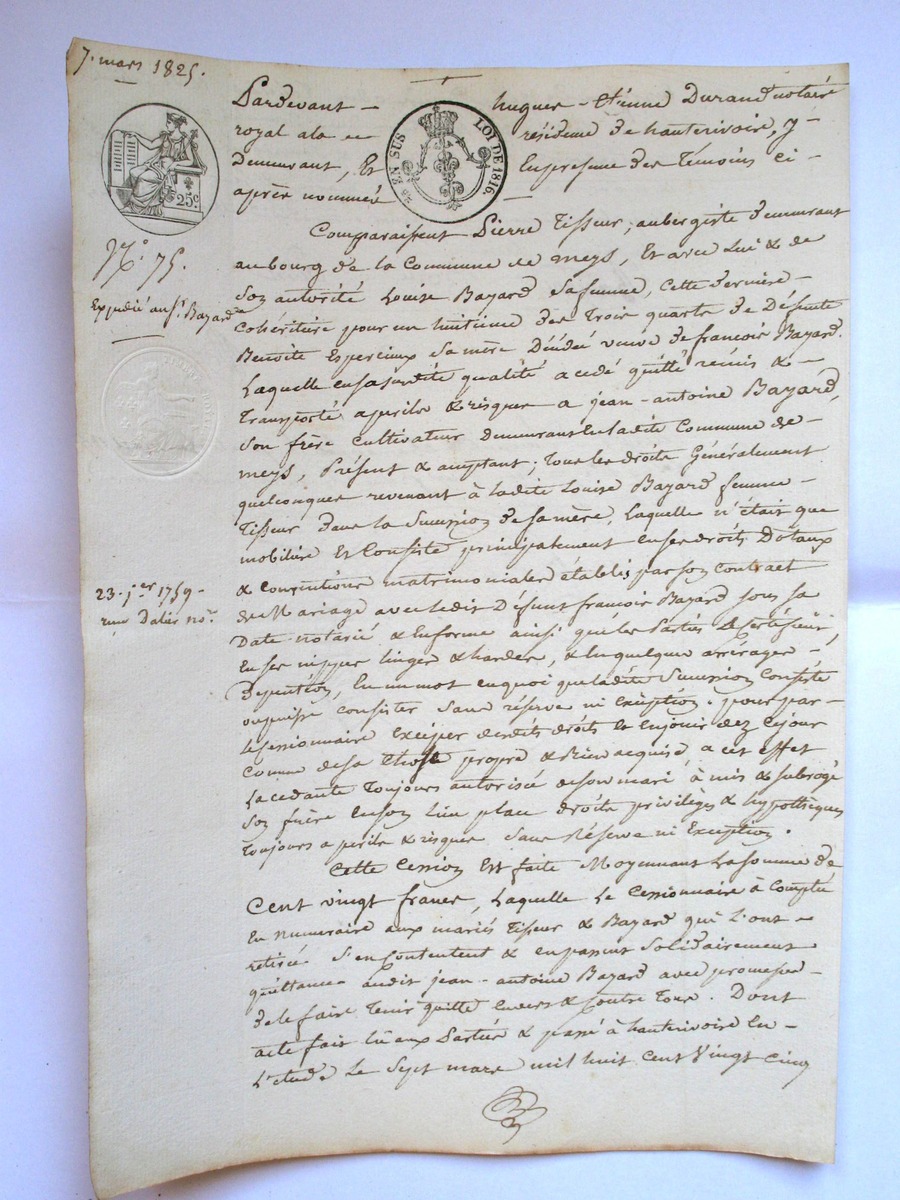 7. mars 1825.
25c.
EN SUS LOI DE 1816.
Pardevant hugues-Etienne Durand notaire
royal a la residence de hauterivoire, y
demeurant, Et En presence des Témoins ci-
après nommés
N.° 75.
Expedié au sr. Bayard
Comparaissent Pierre Tisseur, aubergiste demeurant
au bourg de la Commune de meys, Et avec Lui & de
Son autorité Louise Bayard Sa femme, Cette dernière
Cohéritière pour un huitième des Trois quarts de Défunte
Benoite Esperieux Sa mère Décédée veuve de françois Bayard.
Laquelle en sa susdite qualité a cédé quitté remis &
Transporté a perils & risques a jean-antoine Bayard,
Son frère cultivateur demeurant En ladite Commune de
meys, Présent & acceptant; Tous les droits Généralement
quelconques revenant à Ladite Louise Bayard femme
Tisseur dans la Succession de sa mère, Laquelle n'était que
mobilière Et Consiste principalement en ses droits Dotaux
& Conventions matrimoniales etablis par son contract
de Mariage avec ledit Défunt françois Bayard sous sa
23. j.er 1759
reçu Dalier no.re
Date notarié & En forme ainsi que les Parties Le Certifient
En ses nippes linges & hardes, & En quelques arrérages
De pention, En un mot en quoi que ladite Succession Consiste
ou puisse consister Sans réserve ni Exception. pour par
le cessionnaire Exciper desdits droits Et En jouir dez Ce jour
Comme de sa Chose propre & Bien acquise, a cet effet
La cedante Toujours autorisée de son mari, à mis & subrogé
Son frère En son Lieu place droits privilèges & hypothèques
Toujours a perils & risques Sans Réserve ni Exception.
Cette Cession Est faite Moyennant La somme de
Cent vingt francs, Laquelle Le Cessionnaire à Comptée
En Numéraire aux mariés Tisseur & Bayard qui L'ont
retirée S'en Contentent & en passent Solidairement
quittance audit jean-antoine Bayard avec promesse
de le faire Tenir quitte Envers & Contre Tous. Dont
acte fait Lû aux Parties & passé à hauterivoire En
L'etude Le Sept mars mil huit Cent Vingt Cinq